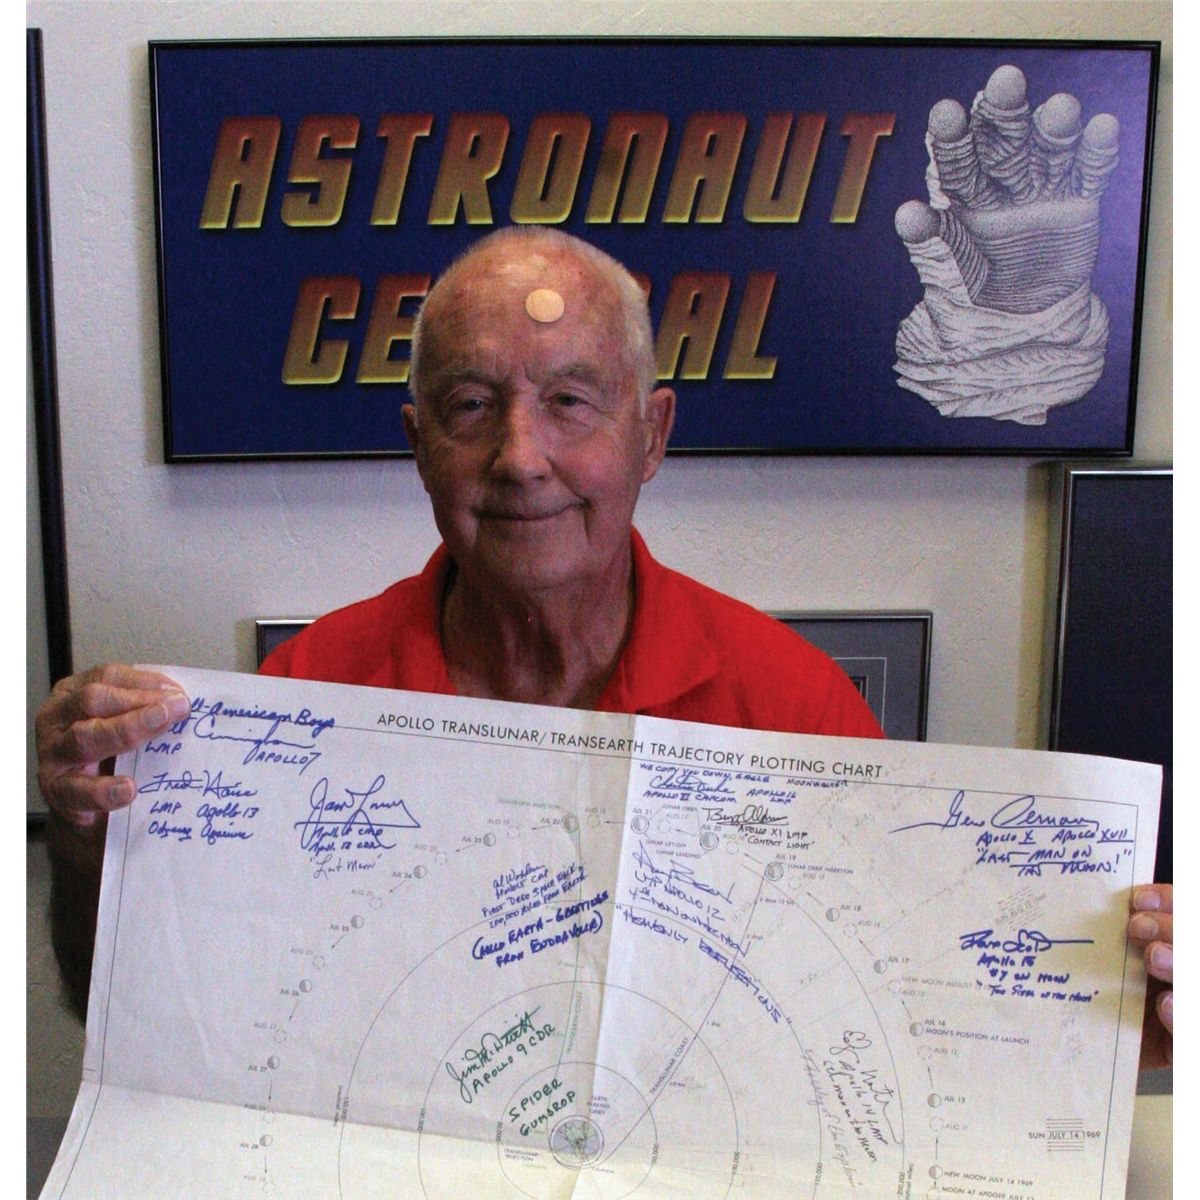 ASTRONAUT
CENTRAL
APOLLO TRANSLUNAR/TRANSEARTH TRAJECTORY PLOTTING CHART
ll-American Boys
Cunningham
LMP
APOLLO 7
Fred Haise
LMP Apollo 13
Odyssey Aquarius
"Lost Moon"
WE COPY YOU DOWN, EAGLE
MOONWALKER
Charlie Duke
APOLLO 16
APOLLO XI CAPCOM
LMP
Buzz Aldrin
APOLLO XI LMP
"CONTACT LIGHT"
Gene Cernan
APOLLO X APOLLO XVII
"LAST MAN ON
THE MOON!"
Al Worden
FIRST DEEP SPACE WALK
200,000 MILES FROM EARTH
(HELLO EARTH - GREETINGS
FROM ENDEAVOUR)
LMP APOLLO 12
4TH MAN ON THE MOON
"HEAVENLY REFLECTIONS"
Dave Scott
Apollo 15
#7 ON MOON
"TWO SIDES OF THE MOON"
Jim McDivitt
APOLLO 9 CDR
SPIDER
GUMDROP
Apollo 14 LMP
6th man on the Moon
TRANSEARTH INJECTION
LUNAR ORBIT
LUNAR LIFT-OFF
LUNAR LANDING
LUNAR ORBIT INSERTION
JUL 22
JUL 21
JUL 20
JUL 19
JUL 18
JUL 17
NEW MOON AUGUST
AUG 13
JUL 16
MOON'S POSITION AT LAUNCH
AUG 12
JUL 15
AUG 11
SUN JULY 14 1969
NEW MOON JULY 14 1969
MOON AT APOGEE JULY 13
JUL 24
JUL 25
JUL 26
JUL 27
JUL 28
TRANSEARTH COAST
TRANSLUNAR COAST
EARTH
PARKING
ORBIT
TRANSLUNAR
INJECTION
50,000
100,000
150,000
200,000